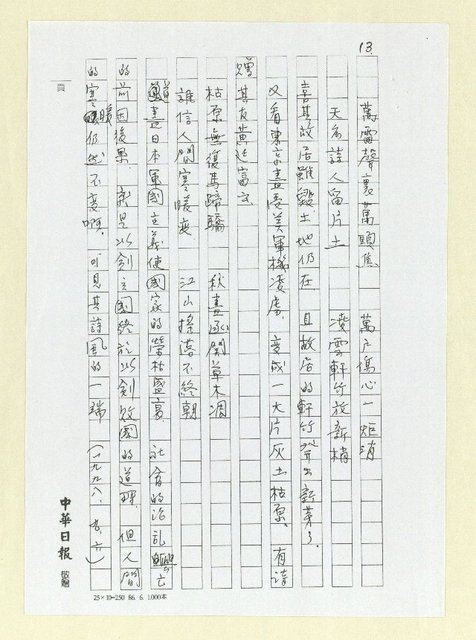 13
萬雷聲裏萬頭焦　萬戶傷心一炬消
天為詩人留片土　凌雲軒竹放新梢
喜其故居雖毀土地仍在　且故居的軒竹發出新芽了
又看東京盡受美軍機凌虐．變成一大片灰土枯原．有詩
贈其友黃廷富云
枯原無復馬蹄驕　秋盡函關草木凋
誰信人間寒暖變　江山搖落不終朝
道盡日本軍國主義使國家的榮枯盛衰　社會的治亂興亡
的前因後果　就是以劍立國終於以劍敗國的道理．但人間
的寒暖仍然不變啊．可見其詩風的一端（一九九八．六）
頁
中華日報
25×10=250 86.6.1000本